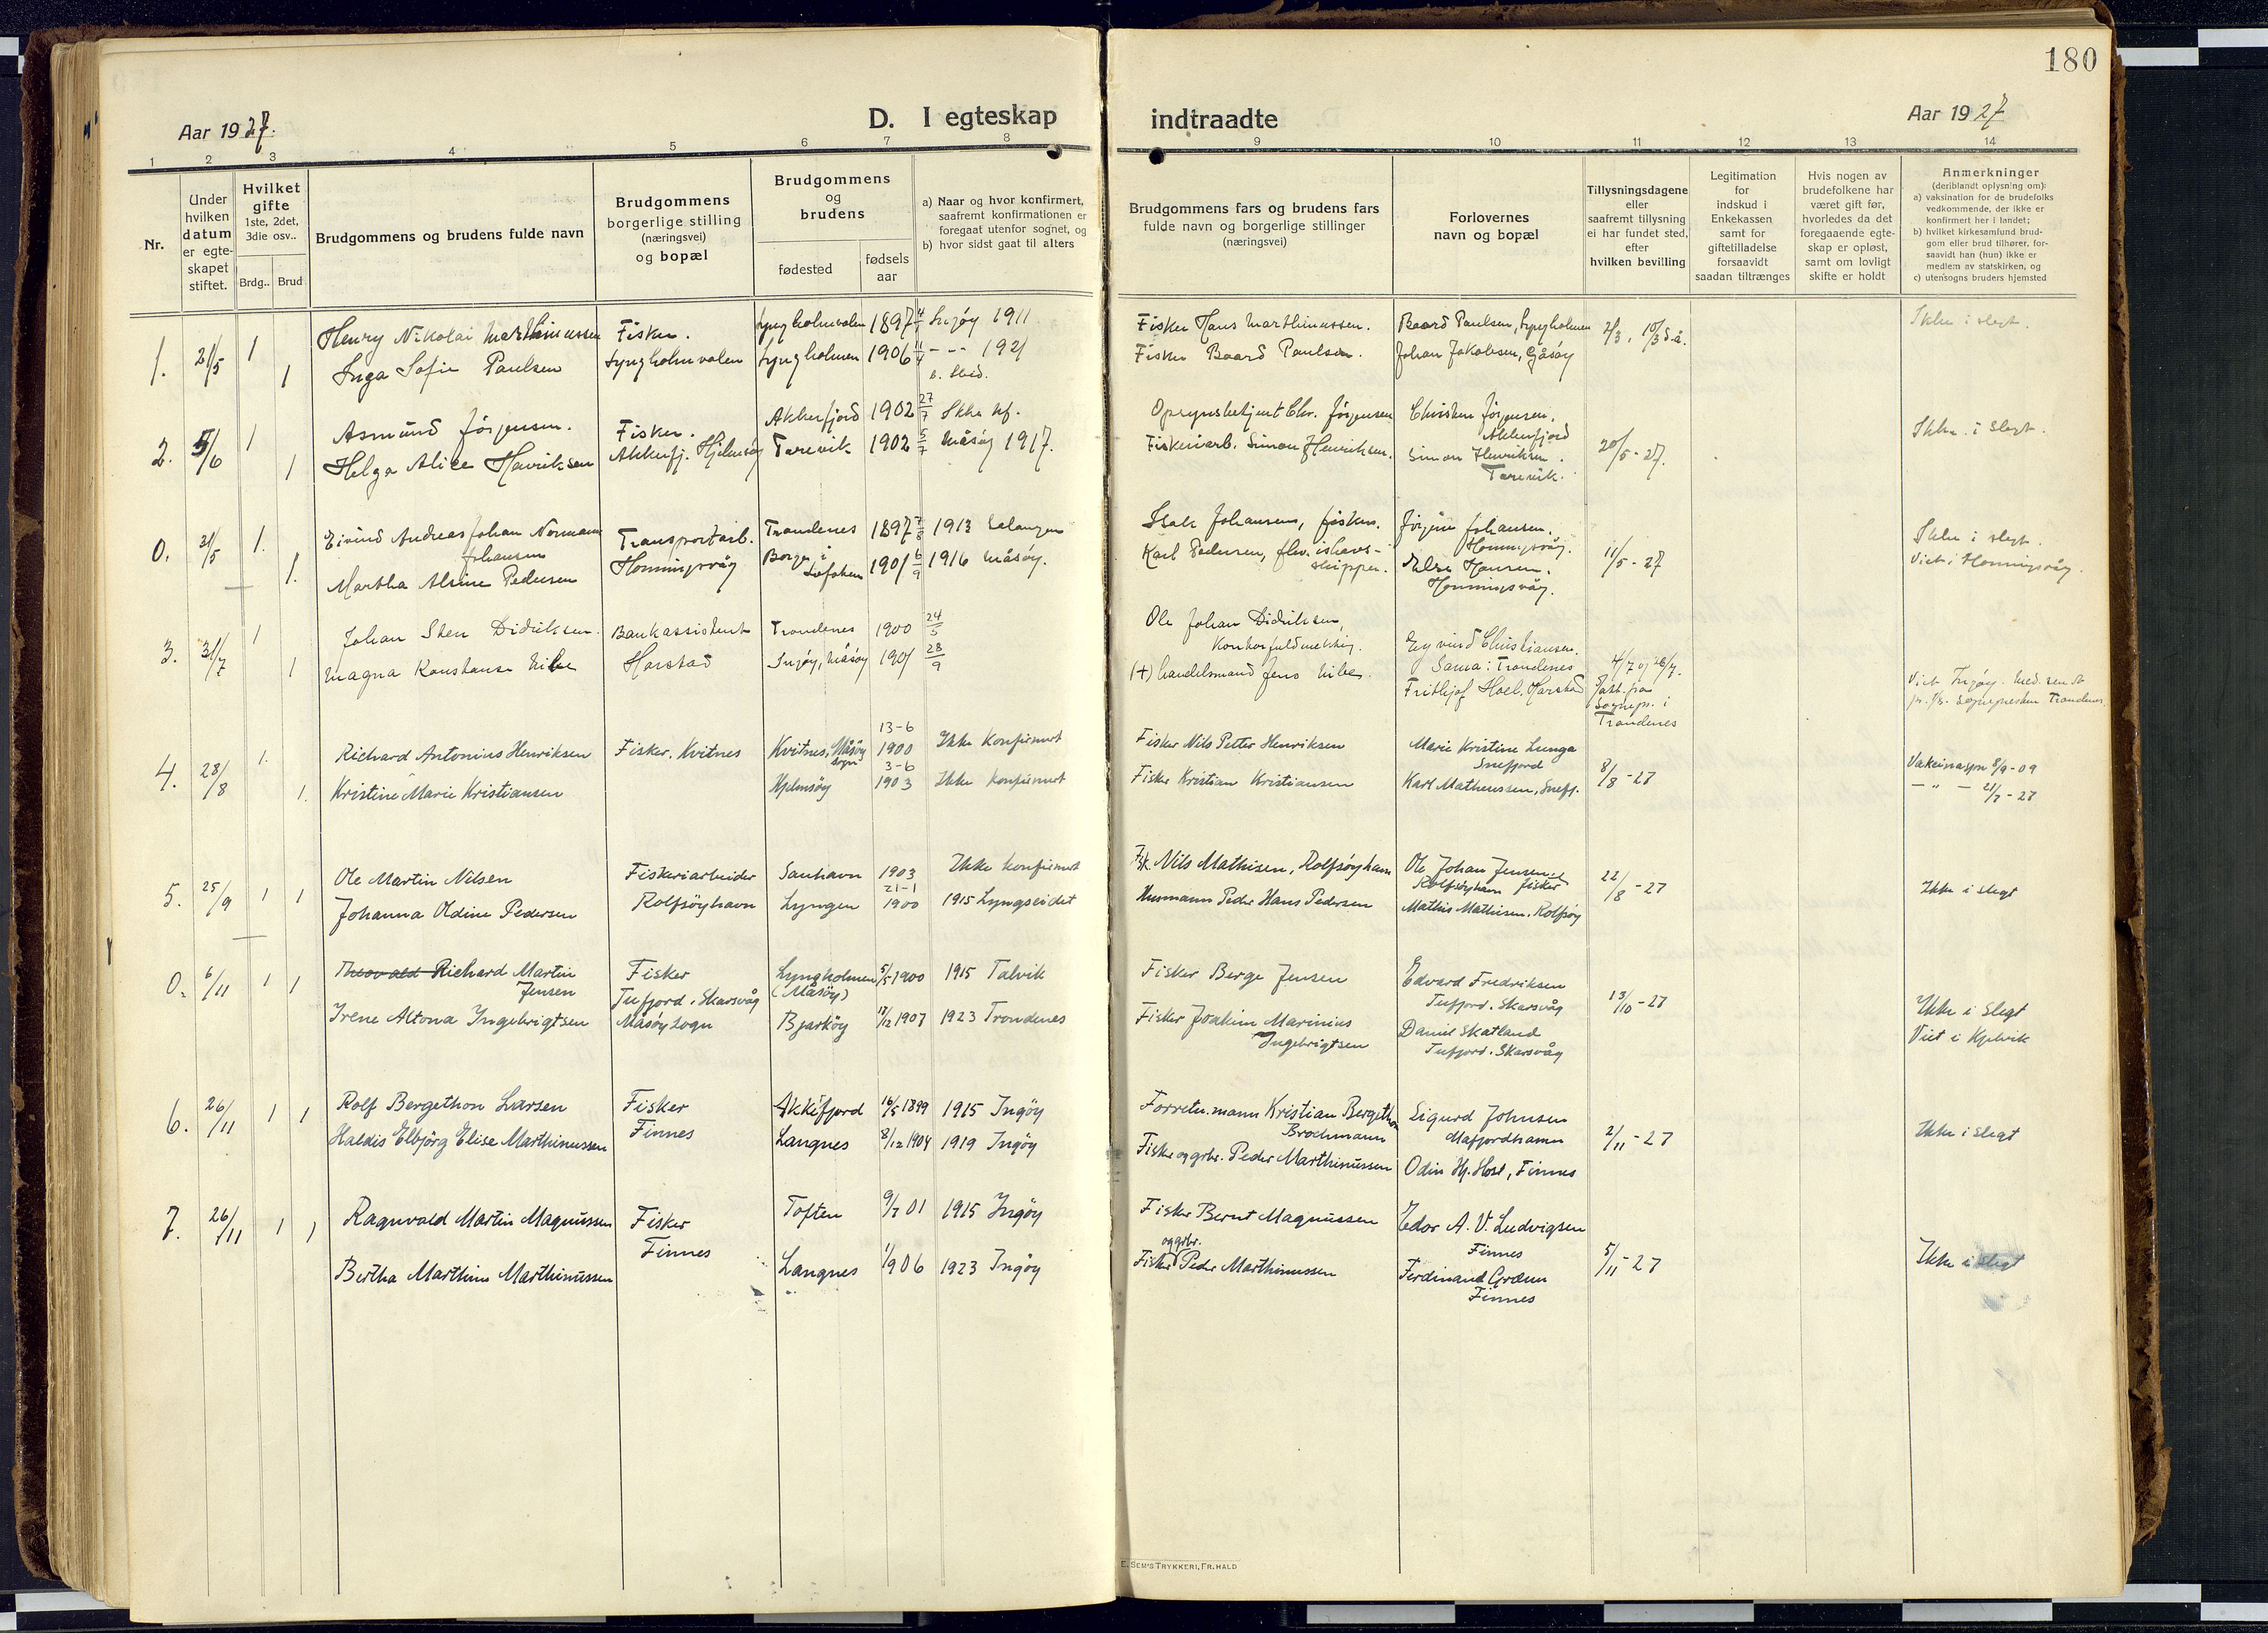 180
Aar 1927.
D. I egteskap
indtraadte
Aar 1927
1 2 3 4 5 6 7 8 9 10 11 12 13 14
Nr.
Under
hvilken
datum
er egte-
skapet
stiftet.
Hvilket
gifte
1ste, 2det,
3die osv..
Brdg.. Brud
Brudgommens og brudens fulde navn
Brudgommens
borgerlige stilling
(næringsvei)
og bopæl
Brudgommens
og
brudens
fødested
fødsels
aar
a) Naar og hvor konfirmert,
saafremt konfirmationen er
foregaat utenfor sognet, og
b) hvor sidst gaat til alters
Brudgommens fars og brudens fars
fulde navn og borgerlige stillinger
(næringsvei)
Forlovernes
navn og bopæl
Tillysningsdagene
eller
saafremt tillysning
ei har fundet sted,
efter
hvilken bevilling
Legitimation
for
indskud i
Enkekassen
samt for
giftetilladelse
forsaavidt
saadan tiltrænges
Hvis nogen av
brudefolkene har
været gift før,
hvorledes da det
foregaaende egte-
skap er opløst,
samt om lovligt
skifte er holdt
Anmerkninger
(deriblandt oplysning om):
a) vaksination for de brudefolks
vedkommende, der ikke er
konfirmert her i landet;
b) hvilket kirkesamfund brud-
gom eller brud tilhører, for-
saavidt han (hun) ikke er
medlem av statskirken, og
c) utensogns bruders hjemsted
1. 21/5 1 Henry Nikolai Marthinussen Fisker. Lyngholmvalen 1897 Ingøy 1911 Fisker Hans Marthinussen. Baard Paulsen, Lyngholmen Ikke i slegt.
1 Inga Sofie Paulsen Lyngholmvalen Lyngholmen 1906 11/4 - - - 1921 Fisker Baard Paulsen. Johan Jakobsen, Gåsøy
2. 5/6 1 Asmund Jørgensen. Fisker. Akkerfjord 1902 27/7 Ikke kf. Opsynsbetjent Chr. Jørgensen Christen Jørgensen, Akkerfjord 20/5-27. Ikke i slegt.
1 Helga Alice Henriksen Akkerfj. Hjelmsøy Tarevik 1902 5/7 Måsøy 1917. Fiskeriarb. Simon Henriksen. Simon Henriksen. Tarevik.
0. 21/5 1. Eivind Andreas Johan Normann Johansen Transportarb. Trondenes 1897 1913 Salangen Isak Johansen, fisker. Jørgine Johansen. Honningsvåg. 11/5-27 Ikke i slegt.
1. Martha Alsine Pedersen Honningsvåg Borge i Lofoten 1901 6/9 1916 Måsøy. Karl Pedersen, flv. ishavs-skipper. Hansen. Honningsvåg. Viet i Honningsvåg.
3. 31/7 1 Johan Sten Didriksen. Bankassistent Trondenes 1900 24/5 Ole Johan Didriksen, Kontorfuldmektig. Eyvind Christiansen. Sama i Trondenes 4/7 og 26/7.
1 Magna Konstanse Hilse Harstad Ingøy, Måsøy 1901 28/9 (+) handelsmand Jens Frithjof Hoel. Harstad fra Sognepr. i Trondenes Viet Ingøy. Med. sendt Sognepresten Trondenes
4. 28/8 1. Richard Antonius Henriksen Fisker. Kvitnes Kvitnes, Måsøy sogn 13-6 1900 Ikke konfirmert Fisker Nils Petter Henriksen Marie Kristine Lunga Snefjord 8/8-27 Vakcinasjon 8/9-09
1. Kristine Marie Kristiansen Hjelmsøy 3-6 1903 Ikke konfirmert Fisker Kristian Kristiansen Karl Matheussen, Snefj. - " - 21/7-27
5. 25/9 1 1 Ole Martin Nilsen Fiskeriarbeider Sanhavn 1903 Ikke konfirmert Fisk. Nils Mathisen, Rolfsøyhavn Ole Johan Jensen Rolfsøyhavn fisker 22/8-27 Ikke i slegt
Johanna Oldine Pedersen Rolfsøyhavn Lyngen 21-1 1900 1915 Lyngseidet Husmann Peder Hans Pedersen Mathis Mathisen. Rolfsøy
0. 6/11 1 1 Theovald Richard Martin Jensen Fisker Lyngholmen (Måsøy) 5/5 1900 1915 Talvik Fisker Berge Jensen Edvard Fredriksen Tufjord. Skarsvåg 13/10-27 Ikke i slegt
Irene Altona Ingebrigtsen Tufjord. Skarsvåg Måsøy Sogn Bjarkøy 17/12 1907 1923 Trondenes Fisker Joakim Marinius Ingebrigtsen Daniel Skatland Tufjord. Skarsvåg Viet i Kjelvik
6. 26/11 1 1 Rolf Bergethon Larsen Fisker Akkefjord 16/5 1899 1915 Ingøy Forretn.mann Kristian Bergethon Brochmann Sigurd Johnsen Mafjordhamn 2/11-27 Ikke i slegt
Haldis Elbjørg Elise Marthinussen Finnes Langnes 8/12 1904 1919 Ingøy Fisker og grbr. Peder Marthinussen Odin Hj. Host, Finnes
7. 26/11 1 1 Ragnvald Martin Magnussen Fisker Toften 9/7 01 1915 Ingøy Fisker Bernt Magnussen Edor A. V. Ludvigsen Finnes 5/11-27 Ikke i slegt
Bertha Marthine Marthinussen Finnes Langnes 1/9 06 1923 Ingøy Fisker og grbr. Peder Marthinussen Ferdinand Finnes
E. SEM'S TRYKKERI, FR. HALD